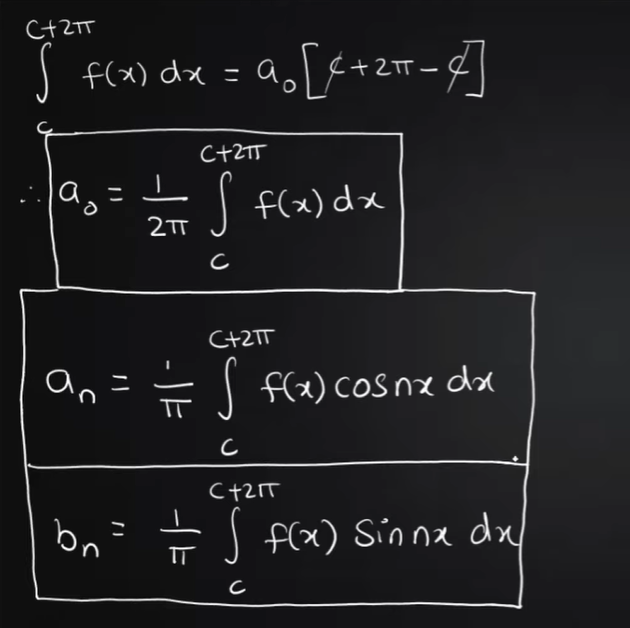 ∫_c^{c+2π} f(x) dx = a₀ [c̸ + 2π − c̸]
∴ a₀ = 1/2π ∫_c^{c+2π} f(x) dx
aₙ = 1/π ∫_c^{c+2π} f(x) cos nx dx
bₙ = 1/π ∫_c^{c+2π} f(x) sin nx dx